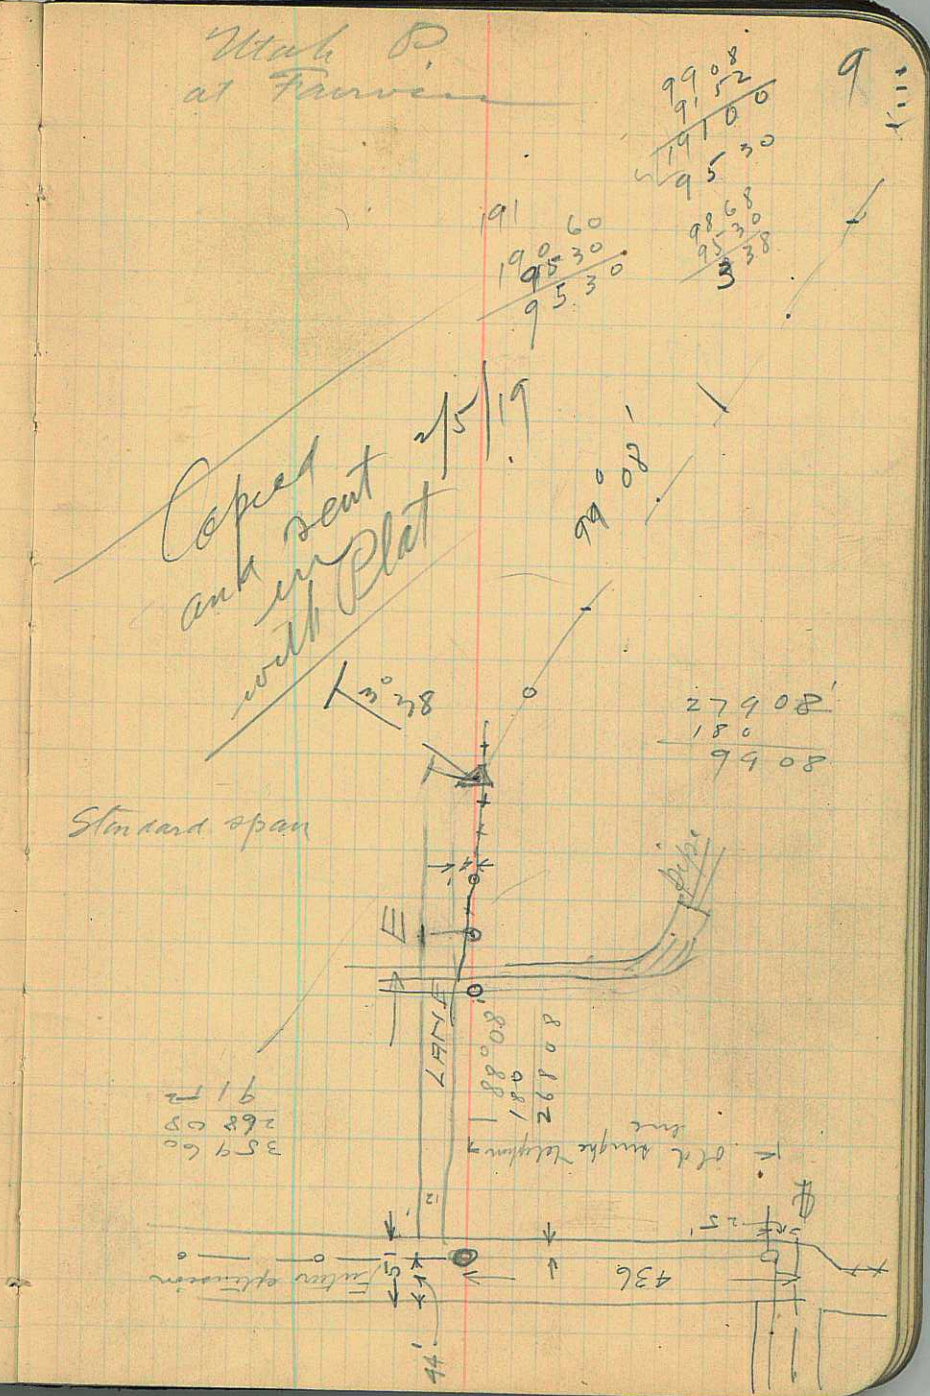 Utah P.
at
9
99 08
91 52
191 00
95 30
191
190 60
95 30
95 30
98 68
95 30
3 38
Copied
and sent 2/5/19
in
with Plat
99° 08'
3° 38
279 08'
180
99 08
Standard span
E
pipe
LANE
188° 08
180
268 08
359 60
268 08
91 52
old single telephone
line
12
25'
Future extension
15'
436
44'